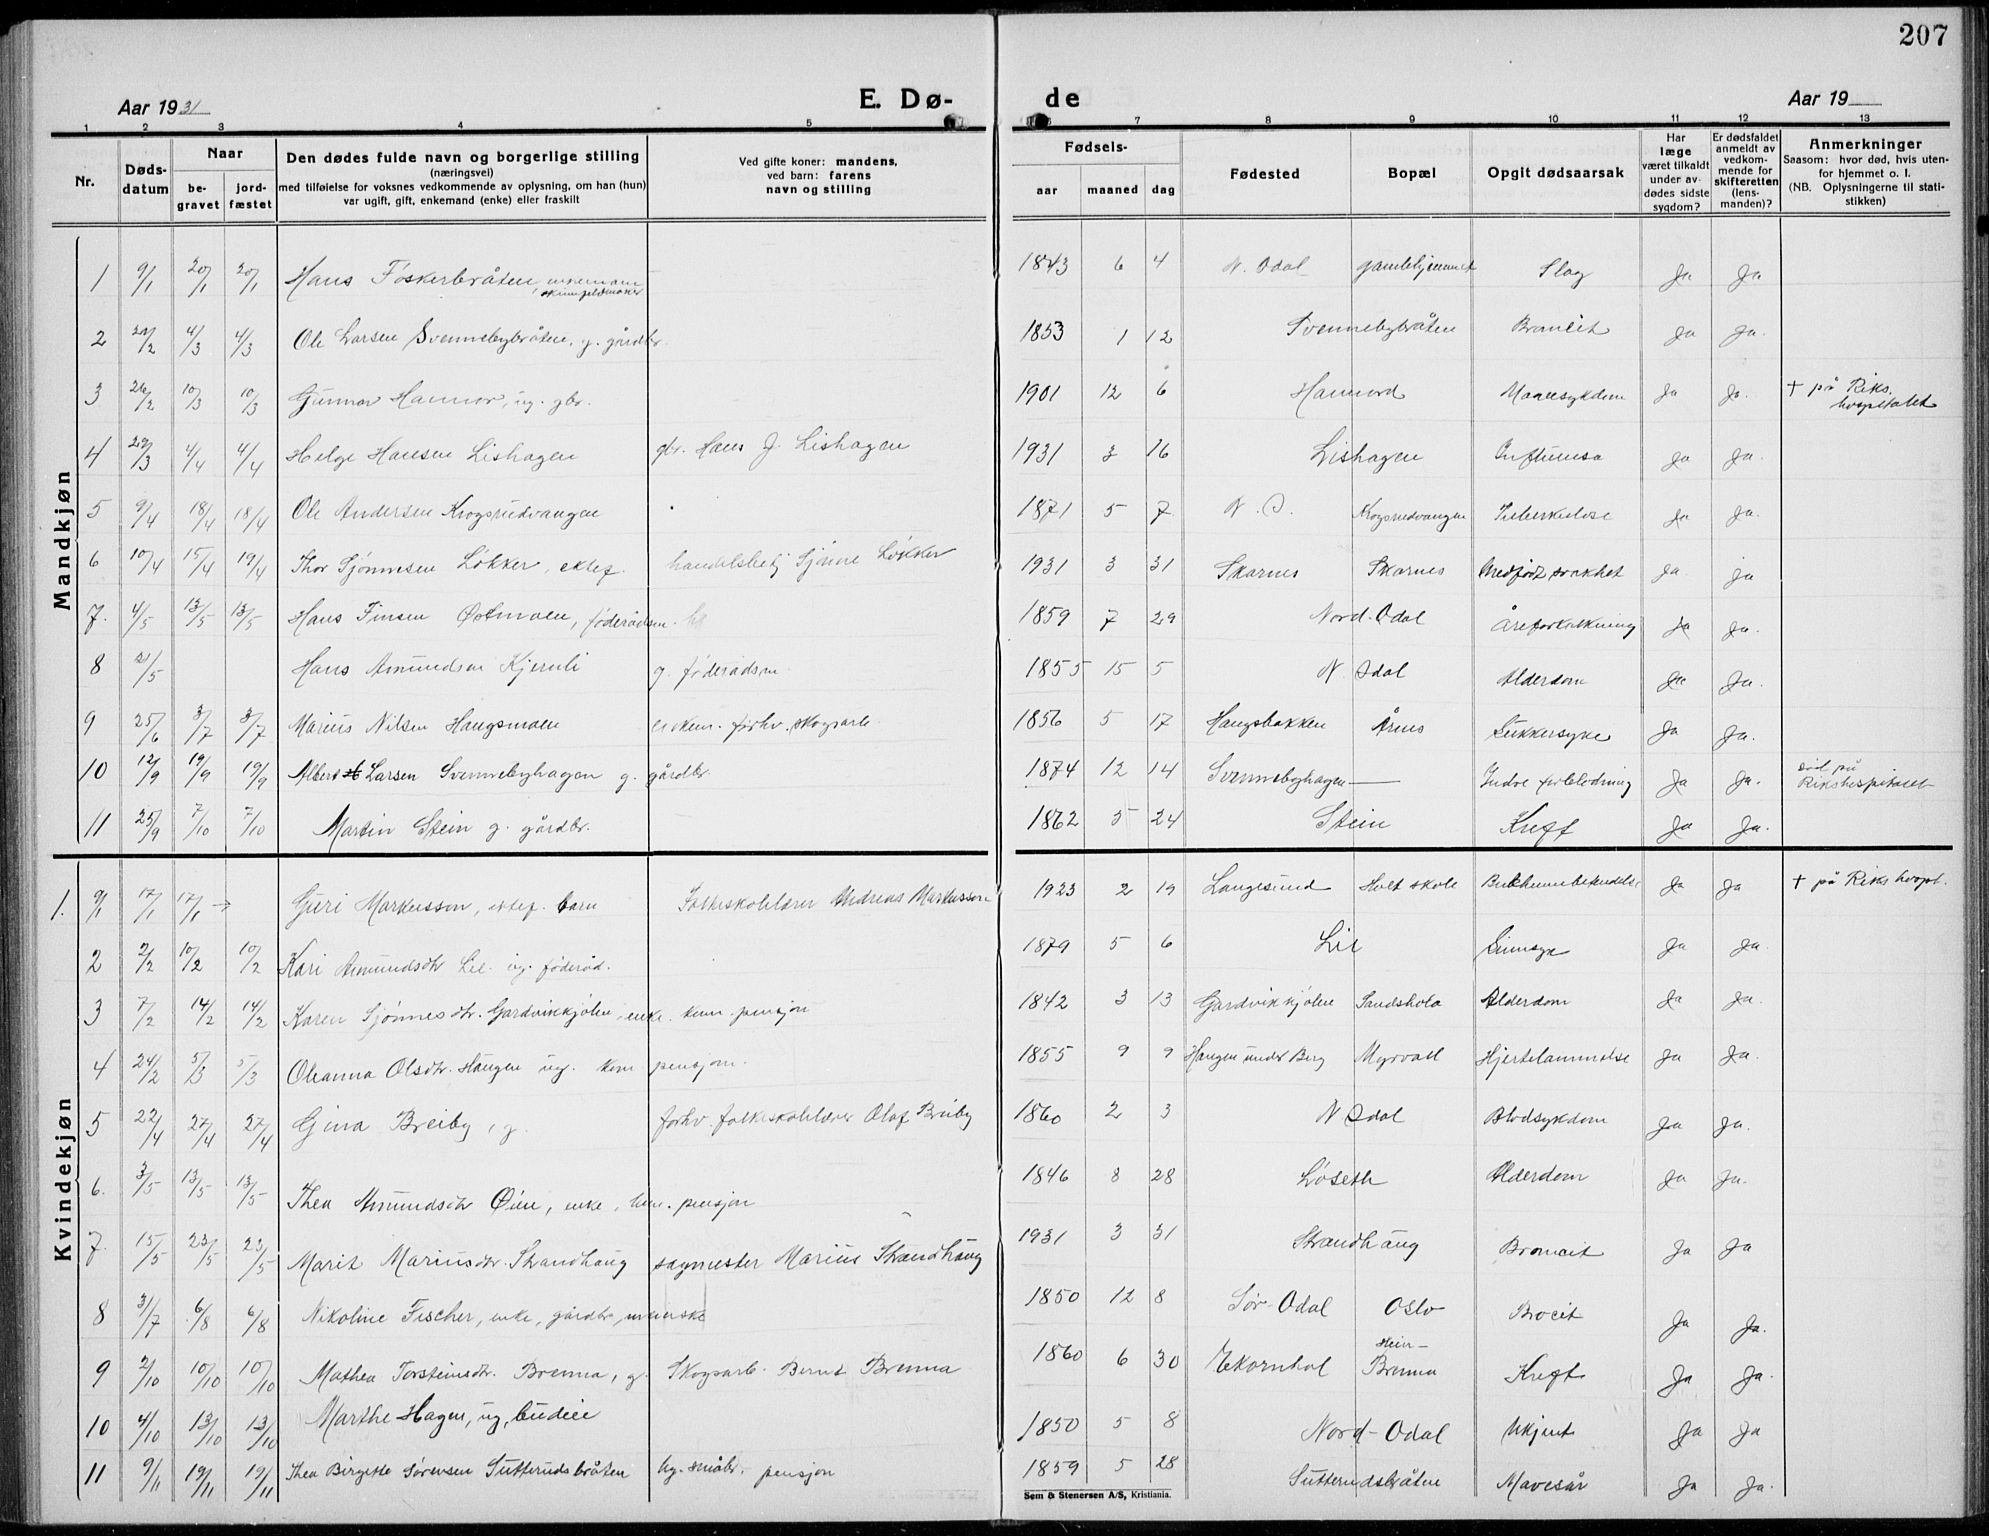 207
Aar 1931 E. Dø- de Aar 19
1 2 3 4 5 6 7 8 9 10 11 12 13
Nr. Døds-datum Naar be-gravet jord-fæstet Den dødes fulde navn og borgerlige stilling (næringsvei) med tilføielse for voksnes vedkommende av oplysning, om han (hun) var ugift, gift, enkemand (enke) eller fraskilt Ved gifte koner: mandens, ved barn: farens navn og stilling Fødsels- aar maaned dag Fødested Bopæl Opgit dødsaarsak Har læge været tilkaldt under av-dødes sidste sygdom? Er dødsfaldet anmeldt av vedkom-mende for skifteretten (lens-manden)? Anmerkninger Saasom: hvor død, hvis uten-for hjemmet o. l. (NB. Oplysningerne til stati-stikken)
Mandkjøn
1 9/1 20/1 20/1 Hans Foskerbråten, 1843 6 4 N. Odal gamlehjemmet Slag Ja Ja
2 4/3 4/3 Ole Larsen Svennebybråten, g. gårdbr. 1853 1 12 Svennebybråten Ja Ja.
3 26/2 10/3 10/3 Gunnar Hannor, ug. gbr. 1901 12 6 Hannord Mavesykdom Ja Ja. † på Riks. hospitalet
4 29/3 4/4 4/4 Helge Hansen Lishagen gbr. Hans J. Lishagen 1931 3 16 Lishagen Ja Ja.
5 9/4 18/4 18/4 Ole Andersen Krogsrudvangen 1871 5 7 N. O. Krogsrudvangen Tuberkulose Ja Ja.
6 10/4 15/4 19/4 Thor Sjønnesen Løkker, ektef. Sjønne Løkker 1931 3 31 Skarnes Skarnes Medfødt svakhet Ja Ja
7. 4/5 13/5 13/5 Hans Finsen Østmoen, føderådsm. 1859 7 29 Nord-Odal Åreforkalkning Ja Ja.
8 21/5 Hans Amundsen Kjernli g. føderådsm. 1855 15 5 N. Odal Alderdom Ja Ja.
9 25/6 3/7 3/7 Marius Nilsen Haugsmoen enkem. forhv. skogsarb. 1856 5 17 Haugsbakken Årnes Sukkersyke Ja Ja.
10 12/9 19/9 19/9 Albert Larsen Svennebyhagen g. gårdbr. 1874 12 14 Svennebyhagen — Indre forblødning Ja Ja. død på Rikshospitalet
11 25/9 7/10 7/10 Martin Stein g. gårdbr. 1862 5 24 Stein Kreft Ja Ja.
Kvindekjøn
1. 9/1 17/1 17/1 → Guri Markusson, ektef. barn Folkeskolelærer Andreas Markusson 1923 2 19 Langesund Holt skole Ja Ja † på Riks hospt.
2 2/2 10/2 10/2 Kari Amundsdtr Lie. ug. føderåd. 1879 5 6 Lie Ja Ja.
3 7/2 14/2 14/2 Karen Sjønnesdtr. Gardvikkjølen, enke. kom. pensjon 1842 3 13 Gardvikkjølen Alderdom Ja Ja.
4 24/2 5/3 5/3 Oleanna Olsdtr. Haugen ug. kom pensjon. 1855 9 9 Haugen under Berg Myrvoll Hjertelammelse Ja Ja.
5 22/4 27/4 27/4 Gina Breiby, g. forhv. folkeskolelærer Olaf Breiby 1860 2 3 N Odal Blodsykdom Ja Ja.
6. 3/5 13/5 13/5 Thea Amundsdtr Øien, enke, kom. pensjon 1846 8 28 Løseth Alderdom Ja Ja.
7. 15/5 23/5 23/5 Marit Mariusdtr. Strandhaug sagmester Marius Strandhaug 1931 3 31 Strandhaug Ja Ja
8 31/7 6/8 6/8 Nikoline Fischer, enke, gårdbr, 1850 12 8 Sør-Odal Oslo Ja Ja.
9 2/10 10/10 10/10 Mathea Torsteinsdtr. Brenna, g. Skogsarb. Bernt Brenna 1860 6 30 Ekornhol Brenna Kreft Ja Ja.
10 4/10 13/10 13/10 Marthe Hagen, ug, budeie 1850 5 8 Nord-Odal Ukjent Ja Ja
11 9/11 19/11 19/11 Thea Birgitte Sørensen Sutterudsbråten pensjon 1859 5 28 Sutterudsbråten Mavesår Ja Ja.
Sem & Stenersen A/S, Kristiania.